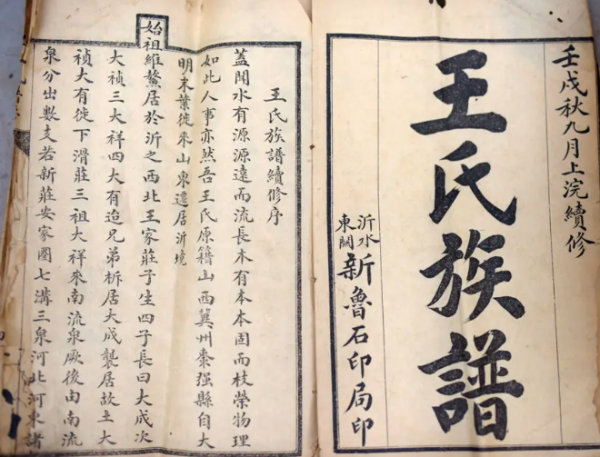 壬戌秋九月上浣續修
王氏族譜
沂水東關新魯石印局印
王氏族譜續修序
蓋聞水有源源遠而流長木有本本固而枝榮物理
如此人事亦然吾王氏原籍山西冀州棗强縣自大
明末葉徙來山東遷居沂境
始祖維鰲居於沂之西北王家莊子生四子長曰大成次
大禎三大祥四大有迨兄弟析居大成襲居故土大
禎大有徙下滑莊三祖大祥來南流泉厥後由南流
泉分出數支若新莊安家圈七溝三泉河北河東諸